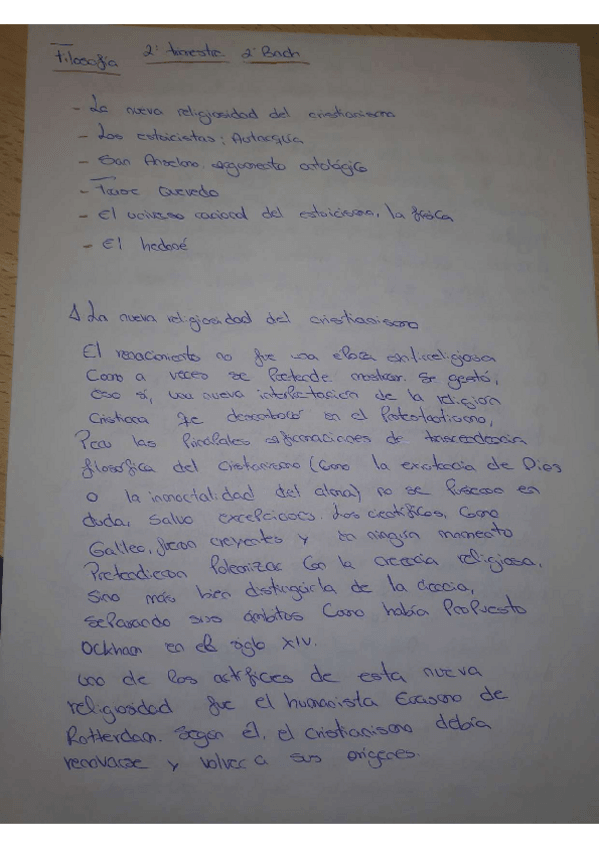 Filosofía 2º trimestre 2º Bach
- La nueva religiosidad del cristianismo
- Los estoicistas: Autarquía
- San Anselmo, argumento ontológico
- Quevedo
- El universo racional del estoicismo, la física
- El hedoné
1 La nueva religiosidad del cristianismo
El renacimiento no fue una época antirreligiosa
Como a veces se Pretende mostrar. Se gestó,
eso sí, una nueva interpretación de la religión
Cristiana que desembocó en el Protestantismo,
Pero las Principales afirmaciones de trascendencia
filosófica del Cristianismo (Como la existencia de Dios
o la inmortalidad del alma) no se pusieron en
duda, Salvo excepciones. Los científicos, Como
Galileo, fueron creyentes y en ningún momento
Pretendieron Polemizar Con la creencia religiosa,
Sino más bien distinguirla de la ciencia,
separando sus ámbitos Como había Propuesto
Ockham en el siglo XIV.
Uno de los artífices de esta nueva
religiosidad fue el humanista Erasmo de
Rotterdam. Según él, el cristianismo debía
renovarse y volver a sus orígenes.